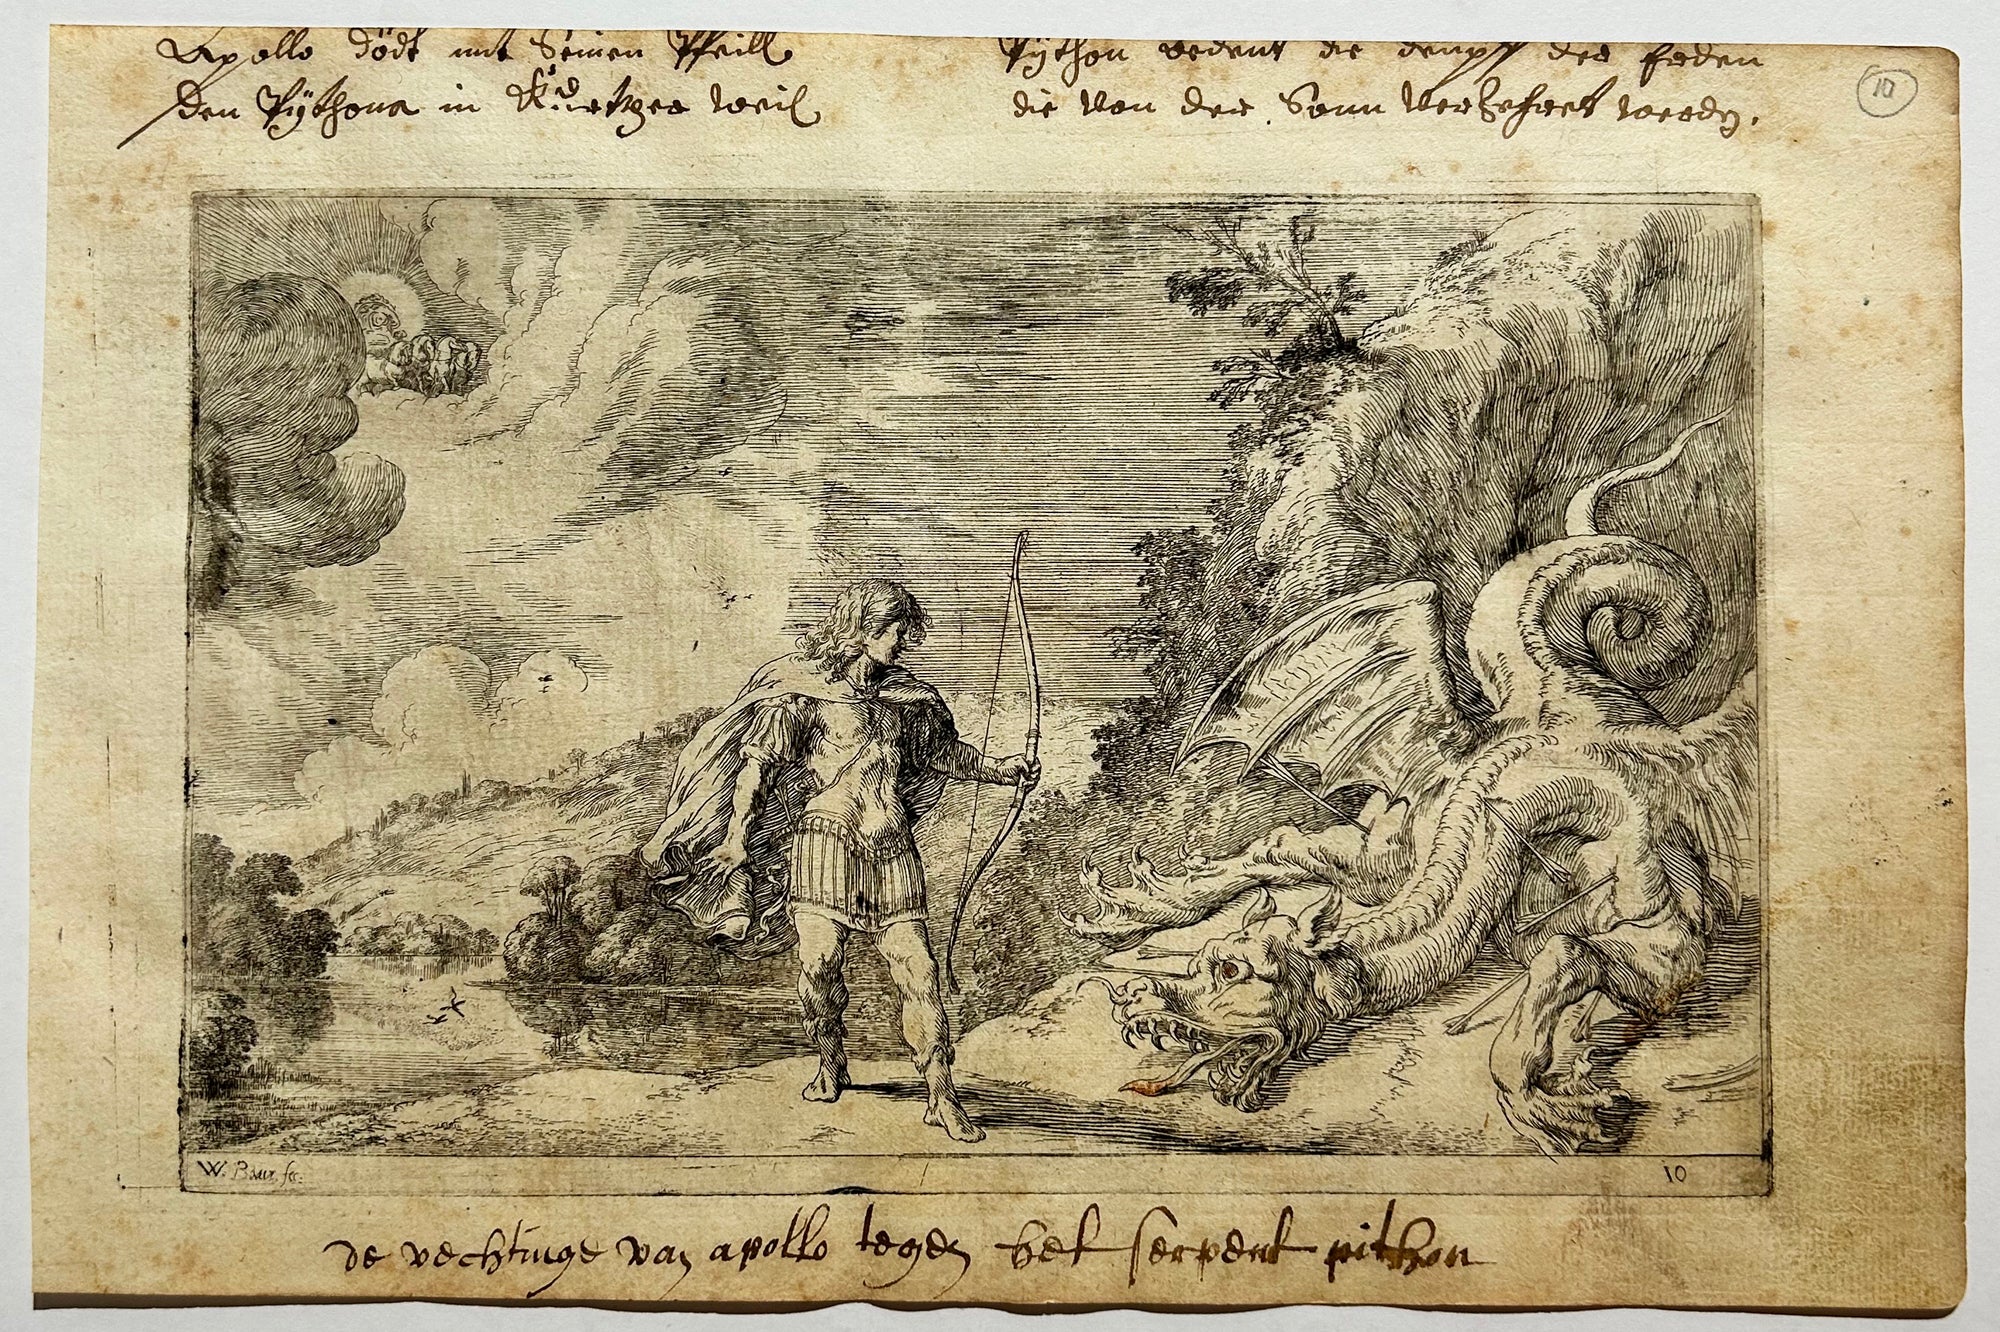 Apollo dödt mit Seinen Pfeill
den Pÿthona in Kurtzer weil
Pÿthon bedeut die dempf der Erden
die von der Sonn verzehret werdn.
10
W. Baur. fec.
10
de vechtinge van apollo tegen het serpent pithon